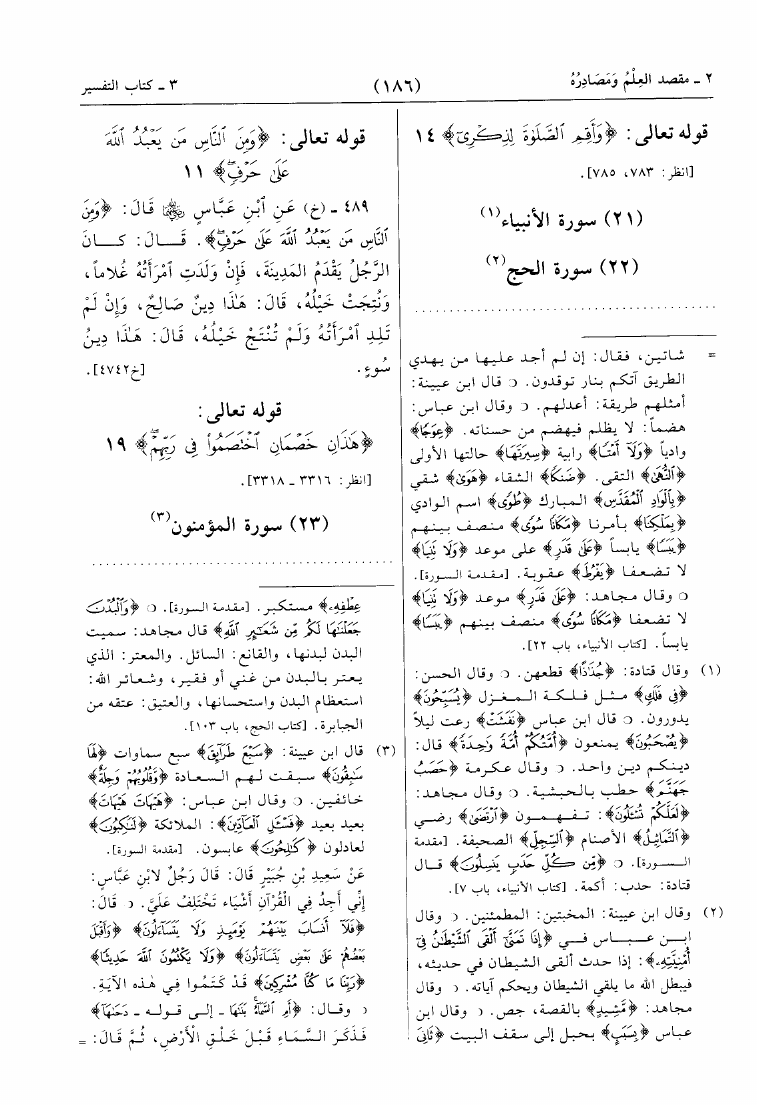 ٢ ـ مقصد العِلْمُ وَمَصَادِرُهُ
(١٨٦)
٣ ـ كتاب التفسير
قوله تعالى: ﴿وَأَقِمِ ٱلصَّلَوٰةَ لِذِكْرِىٓ﴾ ١٤
[انظر: ٧٨٣، ٧٨٥].
(٢١) سورة الأنبياء(١)
(٢٢) سورة الحج(٢)
= شاتين، فقال: إن لم أجد عليها من يهدي
الطريق آتكم بنار توقدون. ○ قال ابن عيينة:
أمثلهم طريقة: أعدلهم. ○ وقال ابن عباس:
هضماً: لا يظلم فيهضم من حسناته. ﴿عِوَجًا﴾
وادياً ﴿وَلَآ أَمْتًا﴾ رابية ﴿سِيرَتَهَا﴾ حالتها الأولى
﴿ٱلنُّهَىٰ﴾ التقى. ﴿ضَنكًا﴾ الشقاء ﴿هَوَىٰ﴾ شقي
﴿بِٱلْوَادِ ٱلْمُقَدَّسِ﴾ المبارك ﴿طُوًى﴾ اسم الوادي
﴿بِمَلْكِنَا﴾ بأمرنا ﴿مَكَانًا سُوًى﴾ منصف بينهم
﴿يَبَسًا﴾ يابساً ﴿عَلَىٰ قَدَرٍ﴾ على موعد ﴿وَلَا تَنِيَا﴾
لا تضعفا ﴿يَفْرُطَ﴾ عقوبة. [مقدمة السورة].
○ وقال مجاهد: ﴿عَلَىٰ قَدَرٍ﴾ موعد ﴿وَلَا تَنِيَا﴾
لا تضعفا ﴿مَكَانًا سُوًى﴾ منصف بينهم ﴿يَبَسًا﴾
يابساً. [كتاب الأنبياء، باب ٢٢].
(١) وقال قتادة: ﴿جُذَٰذًا﴾ قطعهن. ○ وقال الحسن:
﴿فِى فَلَكٍ﴾ مثل فلكة المغزل ﴿يَسْبَحُونَ﴾
يدورون. ○ قال ابن عباس ﴿نَفَشَتْ﴾ رعت ليلاً
﴿يُصْحَبُونَ﴾ يمنعون ﴿أُمَّتُكُمْ أُمَّةً وَٰحِدَةً﴾ قال:
دينكم دين واحد. ○ وقال عكرمة ﴿حَصَبُ
جَهَنَّمَ﴾ حطب بالحبشية. ○ وقال مجاهد:
﴿لَعَلَّكُمْ تُسْـَٔلُونَ﴾: تفهمون ﴿ٱرْتَضَىٰ﴾ رضي
﴿ٱلتَّمَاثِيلُ﴾ الأصنام ﴿ٱلسِّجِلِّ﴾ الصحيفة. [مقدمة
السورة]. ○ ﴿مِّن كُلِّ حَدَبٍ يَنسِلُونَ﴾ قال
قتادة: حدب: أكمة. [كتاب الأنبياء، باب ٧].
(٢) وقال ابن عيينة: المخبتين: المطمئنين. ○ وقال
ابن عباس في ﴿إِذَا تَمَنَّىٰٓ أَلْقَى ٱلشَّيْطَٰنُ فِىٓ
أُمْنِيَّتِهِۦ﴾: إذا حدث ألقى الشيطان في حديثه،
فيبطل الله ما يلقي الشيطان ويحكم آياته. ○ وقال
مجاهد: ﴿مَّشِيدٍ﴾ بالقصة، جص. ○ وقال ابن
عباس ﴿بِسَبَبٍ﴾ بحبل إلى سقف البيت ﴿ثَانِىَ
قوله تعالى: ﴿وَمِنَ ٱلنَّاسِ مَن يَعْبُدُ ٱللَّهَ
عَلَىٰ حَرْفٍ﴾ ١١
٤٨٩ ـ (خ) عَنِ ٱبْنِ عَبَّاسٍ ﵄ قَالَ: ﴿وَمِنَ
ٱلنَّاسِ مَن يَعْبُدُ ٱللَّهَ عَلَىٰ حَرْفٍ﴾. قَالَ: كَانَ
الرَّجُلُ يَقْدَمُ المَدِينَةَ، فَإِنْ وَلَدَتِ ٱمْرَأَتُهُ غُلاماً،
وَنُتِجَتْ خَيْلُهُ، قَالَ: هَٰذَا دِينٌ صَالِحٌ، وَإِنْ لَمْ
تَلِدِ ٱمْرَأَتُهُ وَلَمْ تُنْتَجْ خَيْلُهُ، قَالَ: هَٰذَا دِينُ
سُوءٍ. [خ٤٧٤٢].
قوله تعالى:
﴿هَٰذَانِ خَصْمَانِ ٱخْتَصَمُوا۟ فِى رَبِّهِمْ﴾ ١٩
[انظر: ٣٣١٦ ـ ٣٣١٨].
(٢٣) سورة المؤمنون(٣)
عِطْفِهِۦ﴾ مستكبر. [مقدمة السورة]. ○ ﴿وَٱلْبُدْنَ
جَعَلْنَٰهَا لَكُم مِّن شَعَٰٓئِرِ ٱللَّهِ﴾ قال مجاهد: سميت
البدن لبدنها، والقانع: السائل. والمعتر: الذي
يعتر بالبدن من غني أو فقير، وشعائر الله:
استعظام البدن واستحسانها، والعتيق: عتقه من
الجبابرة. [كتاب الحج، باب ١٠٣].
(٣) قال ابن عيينة: ﴿سَبْعَ طَرَآئِقَ﴾ سبع سماوات ﴿لَهَا
سَٰبِقُونَ﴾ سبقت لهم السعادة ﴿وَّقُلُوبُهُمْ وَجِلَةٌ﴾
خائفين. ○ وقال ابن عباس: ﴿هَيْهَاتَ هَيْهَاتَ﴾
بعيد بعيد ﴿فَسْـَٔلِ ٱلْعَآدِّينَ﴾: الملائكة ﴿لَنَٰكِبُونَ﴾
لعادلون ﴿كَٰلِحُونَ﴾ عابسون. [مقدمة السورة].
عَنْ سَعِيدِ بْنِ جُبَيْرٍ قَالَ: قَالَ رَجُلٌ لابْنِ عَبَّاسٍ:
إِنِّي أَجِدُ فِي الْقُرْآنِ أَشْيَاءَ تَخْتَلِفُ عَلَيَّ. ○ قَالَ:
﴿فَلَآ أَنسَابَ بَيْنَهُمْ يَوْمَئِذٍ وَلَا يَتَسَآءَلُونَ﴾ ﴿وَأَقْبَلَ
بَعْضُهُمْ عَلَىٰ بَعْضٍ يَتَسَآءَلُونَ﴾ ﴿وَلَا يَكْتُمُونَ ٱللَّهَ حَدِيثًا﴾
﴿رَبِّنَا مَا كُنَّا مُشْرِكِينَ﴾ قَدْ كَتَمُوا فِي هَذِهِ الآيَةِ.
○ وقال: ﴿أَمِ ٱلسَّمَآءُ بَنَىٰهَا ـ إلى قوله ـ دَحَىٰهَا﴾
فَذَكَرَ السَّمَاءِ قَبْلَ خَلْقِ الأَرْضِ، ثُمَّ قَالَ: =